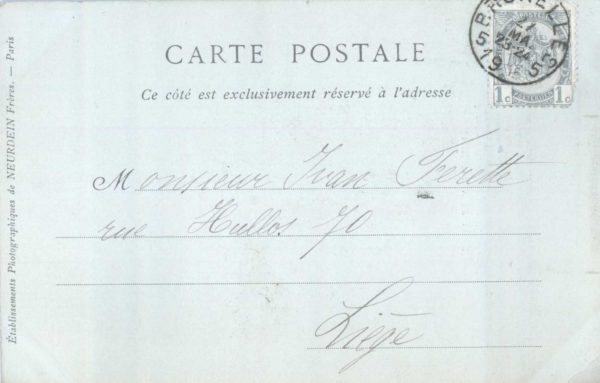 CARTE POSTALE
Ce côté est exclusivement réservé à l'adresse
Monsieur Ivan Ferette
rue Hullos 70
Liége
Établissements Photographiques de NEURDEIN Frères. — Paris
1c 1c